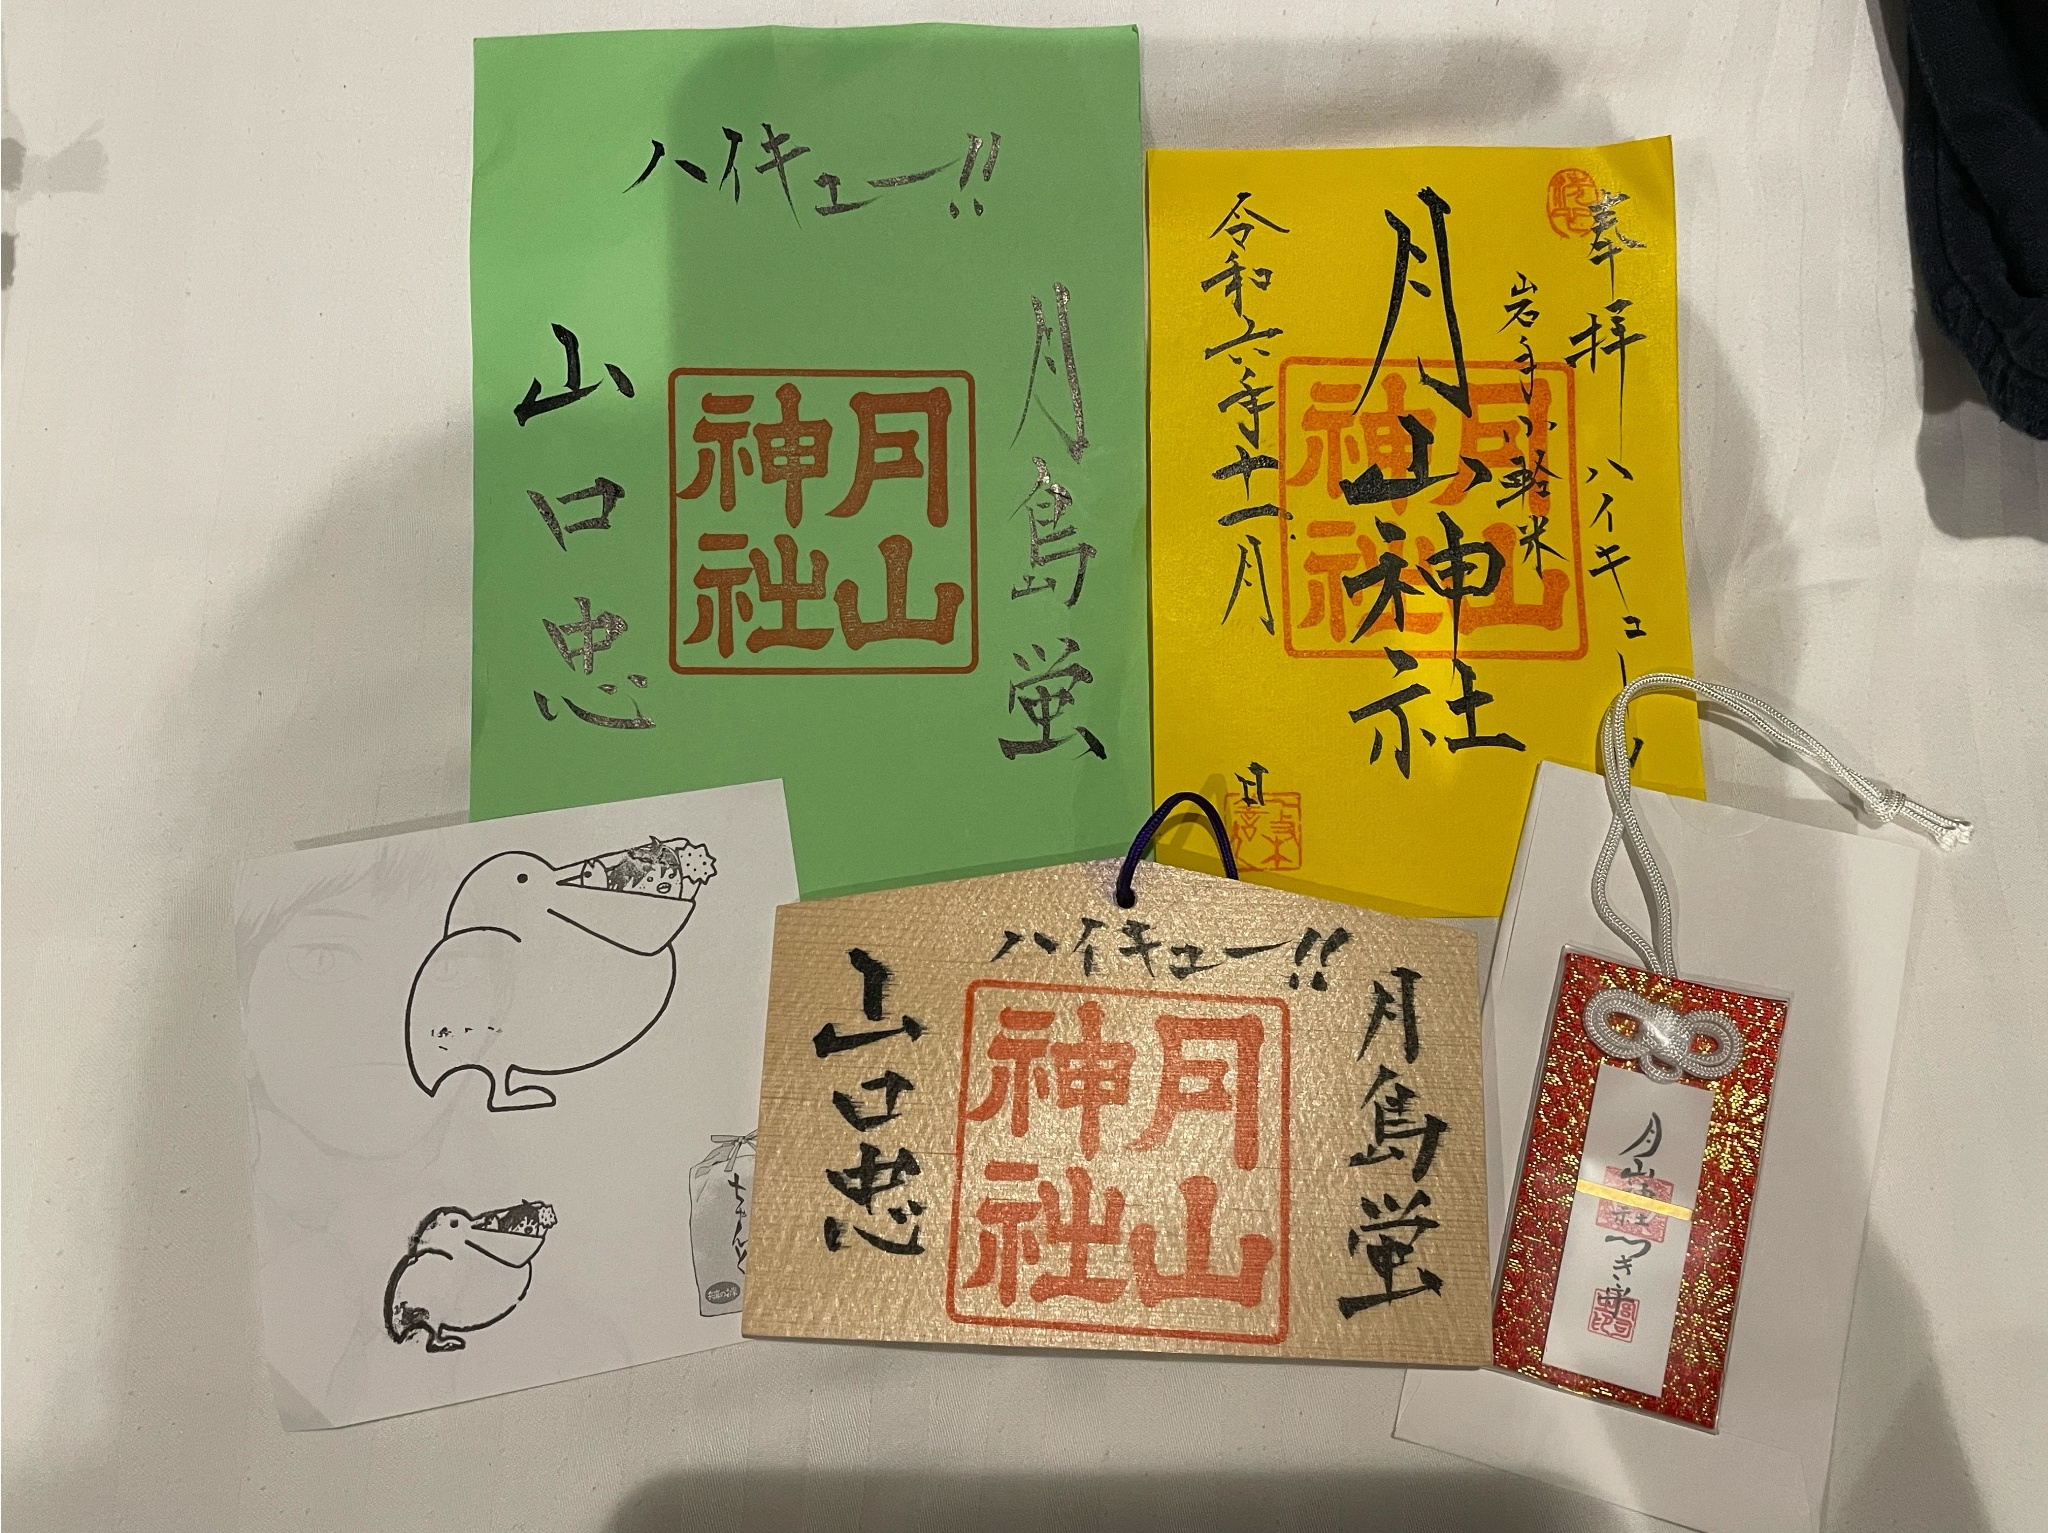 ハイキュー!!
月島蛍
月山
神社
山口忠
奉拝
ハイキュー
岩手小軽米
月山神社
令和六年十一月
日
月山
神社
ハイキュー!!
月島蛍
月山
神社
山口忠
月山神社
ちゃんと